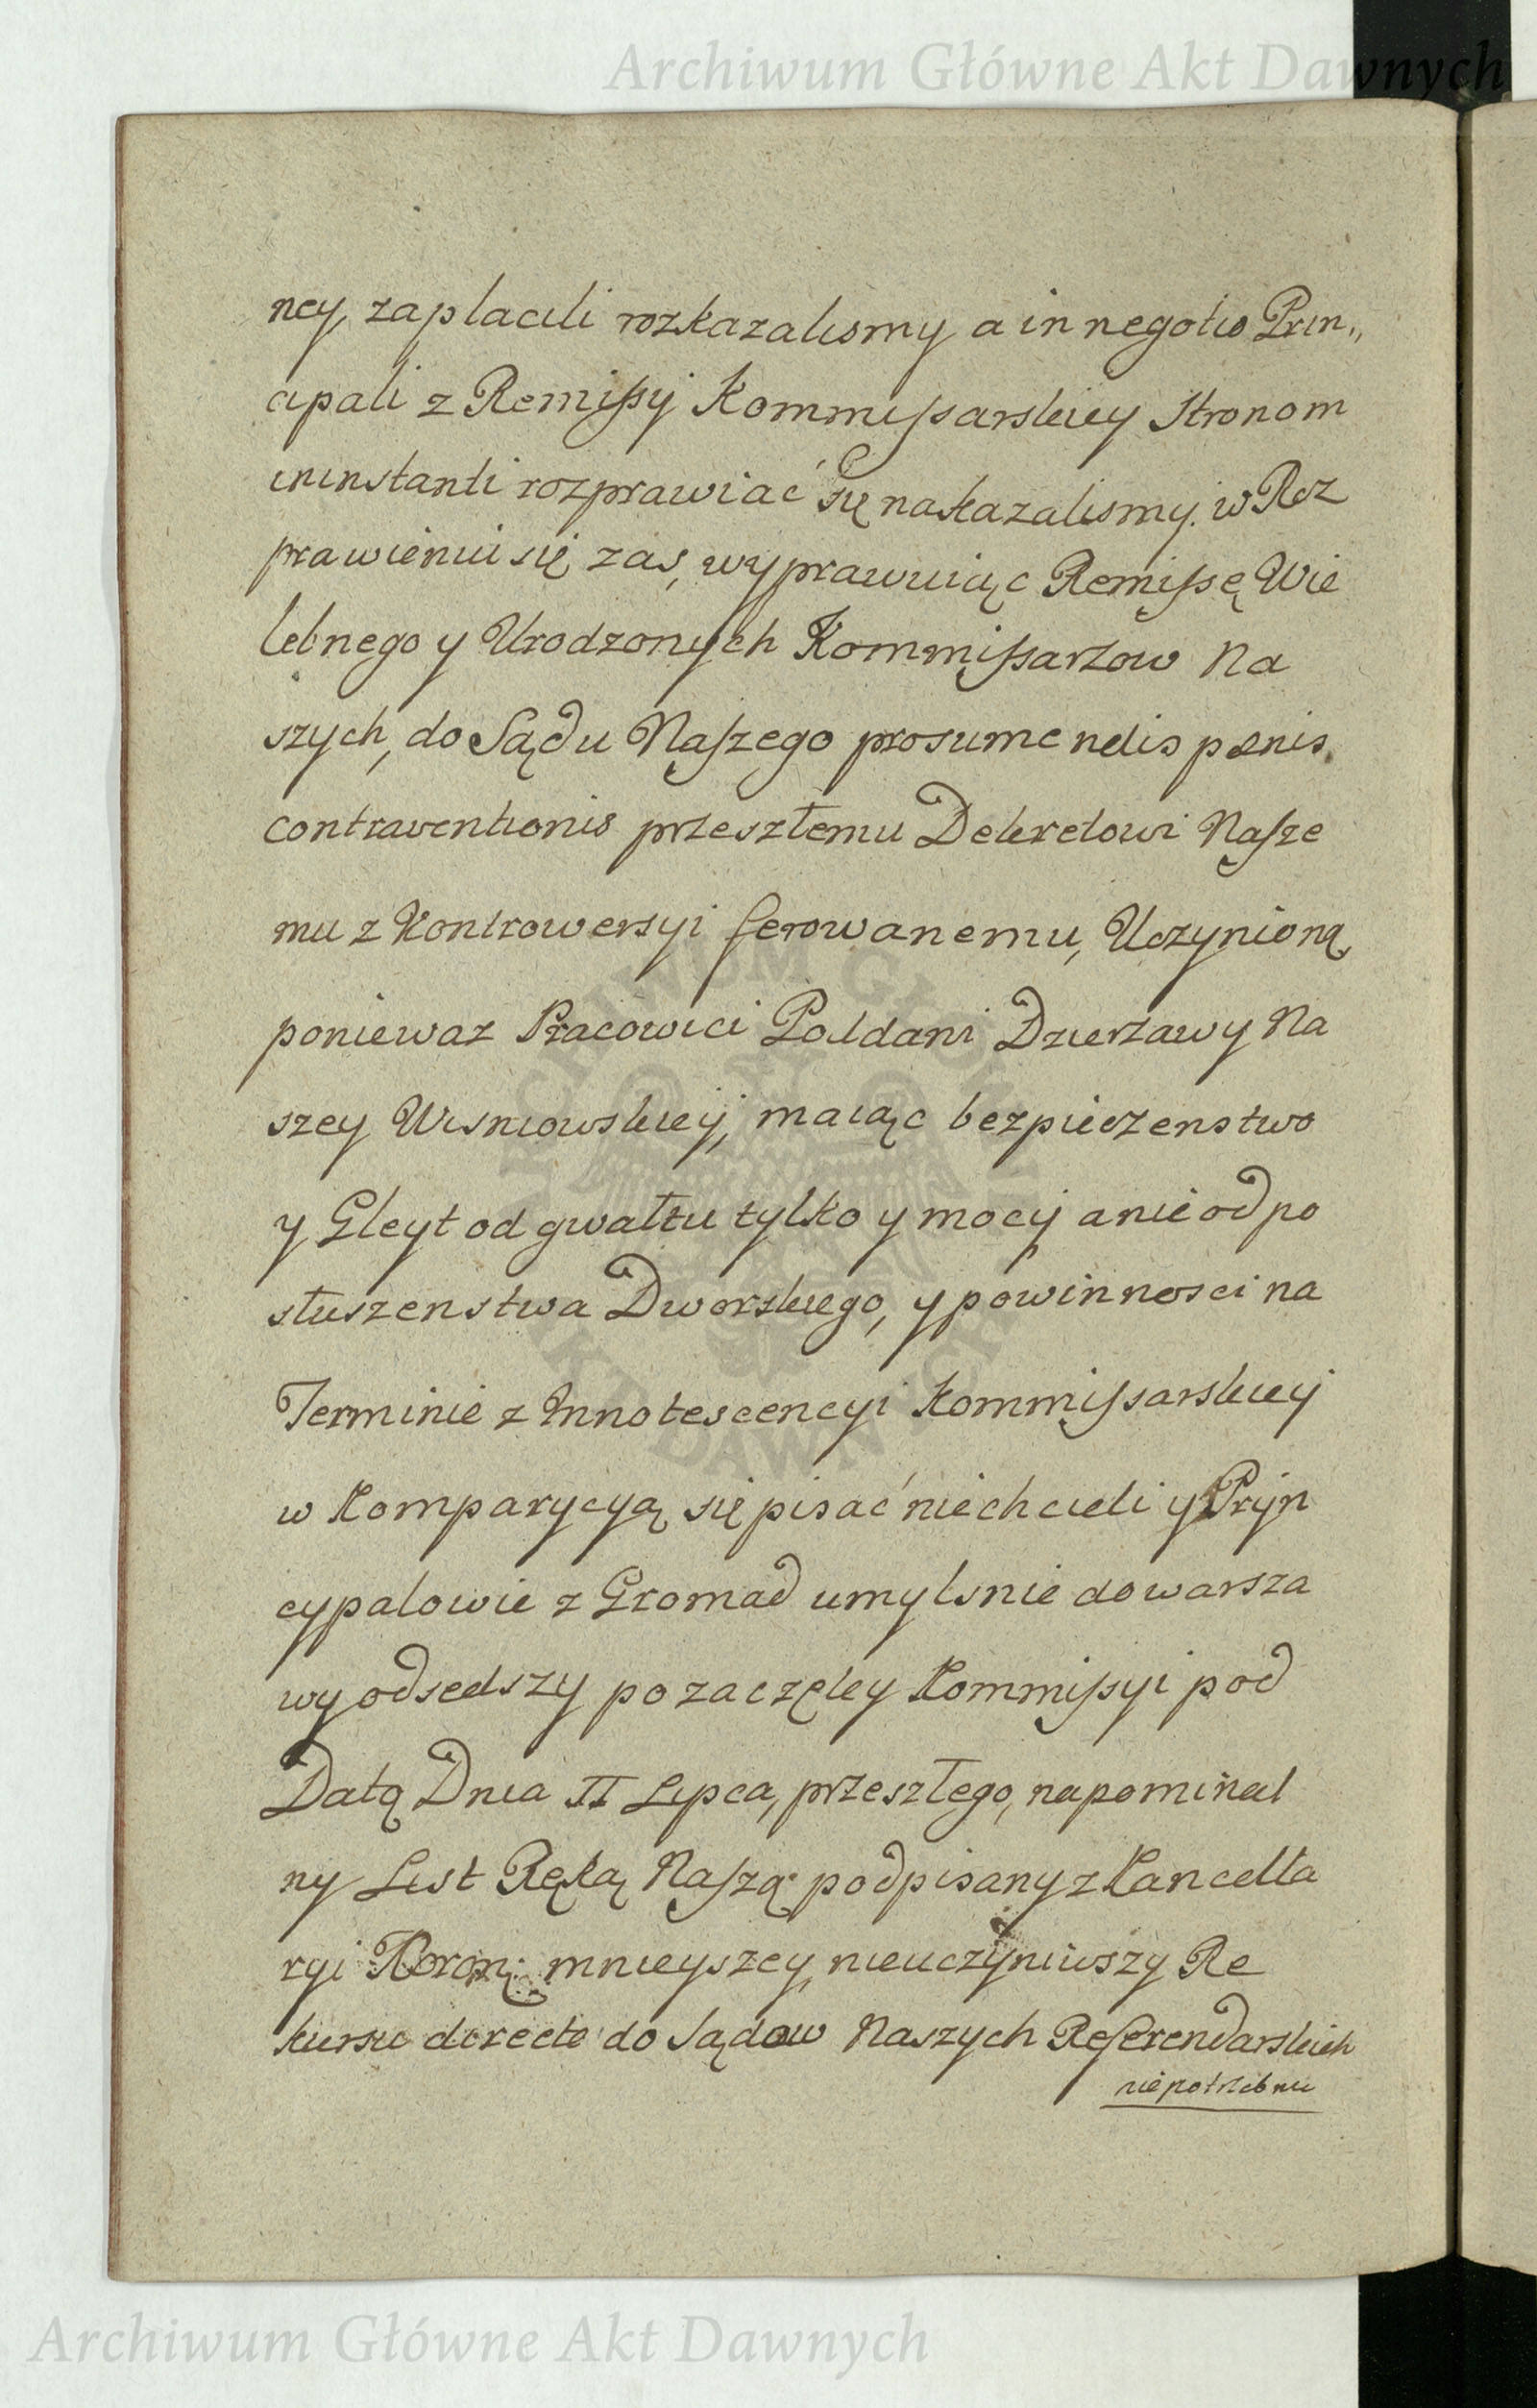 Archiwum Główne Akt Dawnych
ney zaplacili rozkazalismy a in negotio Prin„
cipali z Remißyi Kommißarskiey Stronom
in instanti rozprawiać się nakazalismy. w Roz
prawieniu się zas, wyprawuiąc Remißę Wie
lebnego y Urodzonych Kommißarzow Na
szych, do Sądu Naszego pro sumendis pænis
contraventionis przeszłemu Dekretowi Nasze
mu z Kontrowersyi ferowanemu, Uczynioną
poniewaz Pracowici Poddani Dzierzawy Na
szey Wisniowskiey, maiąc bezpieczenstwo
y Gleyt od gwałtu tylko y mocy a nie od po
słuszenstwa Dworskiego, y powinnosci na
Terminie z Innotescencyi Kommißarskiey
w Komparycyą się pisać niechcieli y Pryn
cypalowie z Gromad umyslnie do warsza
wy odsedszy po zaczętey Kommißyi pod
Datą Dnia II Lipca, przeszłego, napominal
ny List Ręką Naszą podpisany z Kancella
ryi Koron: mnieyszey, nieuczyniwszy Re
kursu directe do Sądow Naszych Referendarskich
niepotrzebnie
ARCHIWUM GŁÓWNE AKT DAWNYCH
Archiwum Główne Akt Dawnych